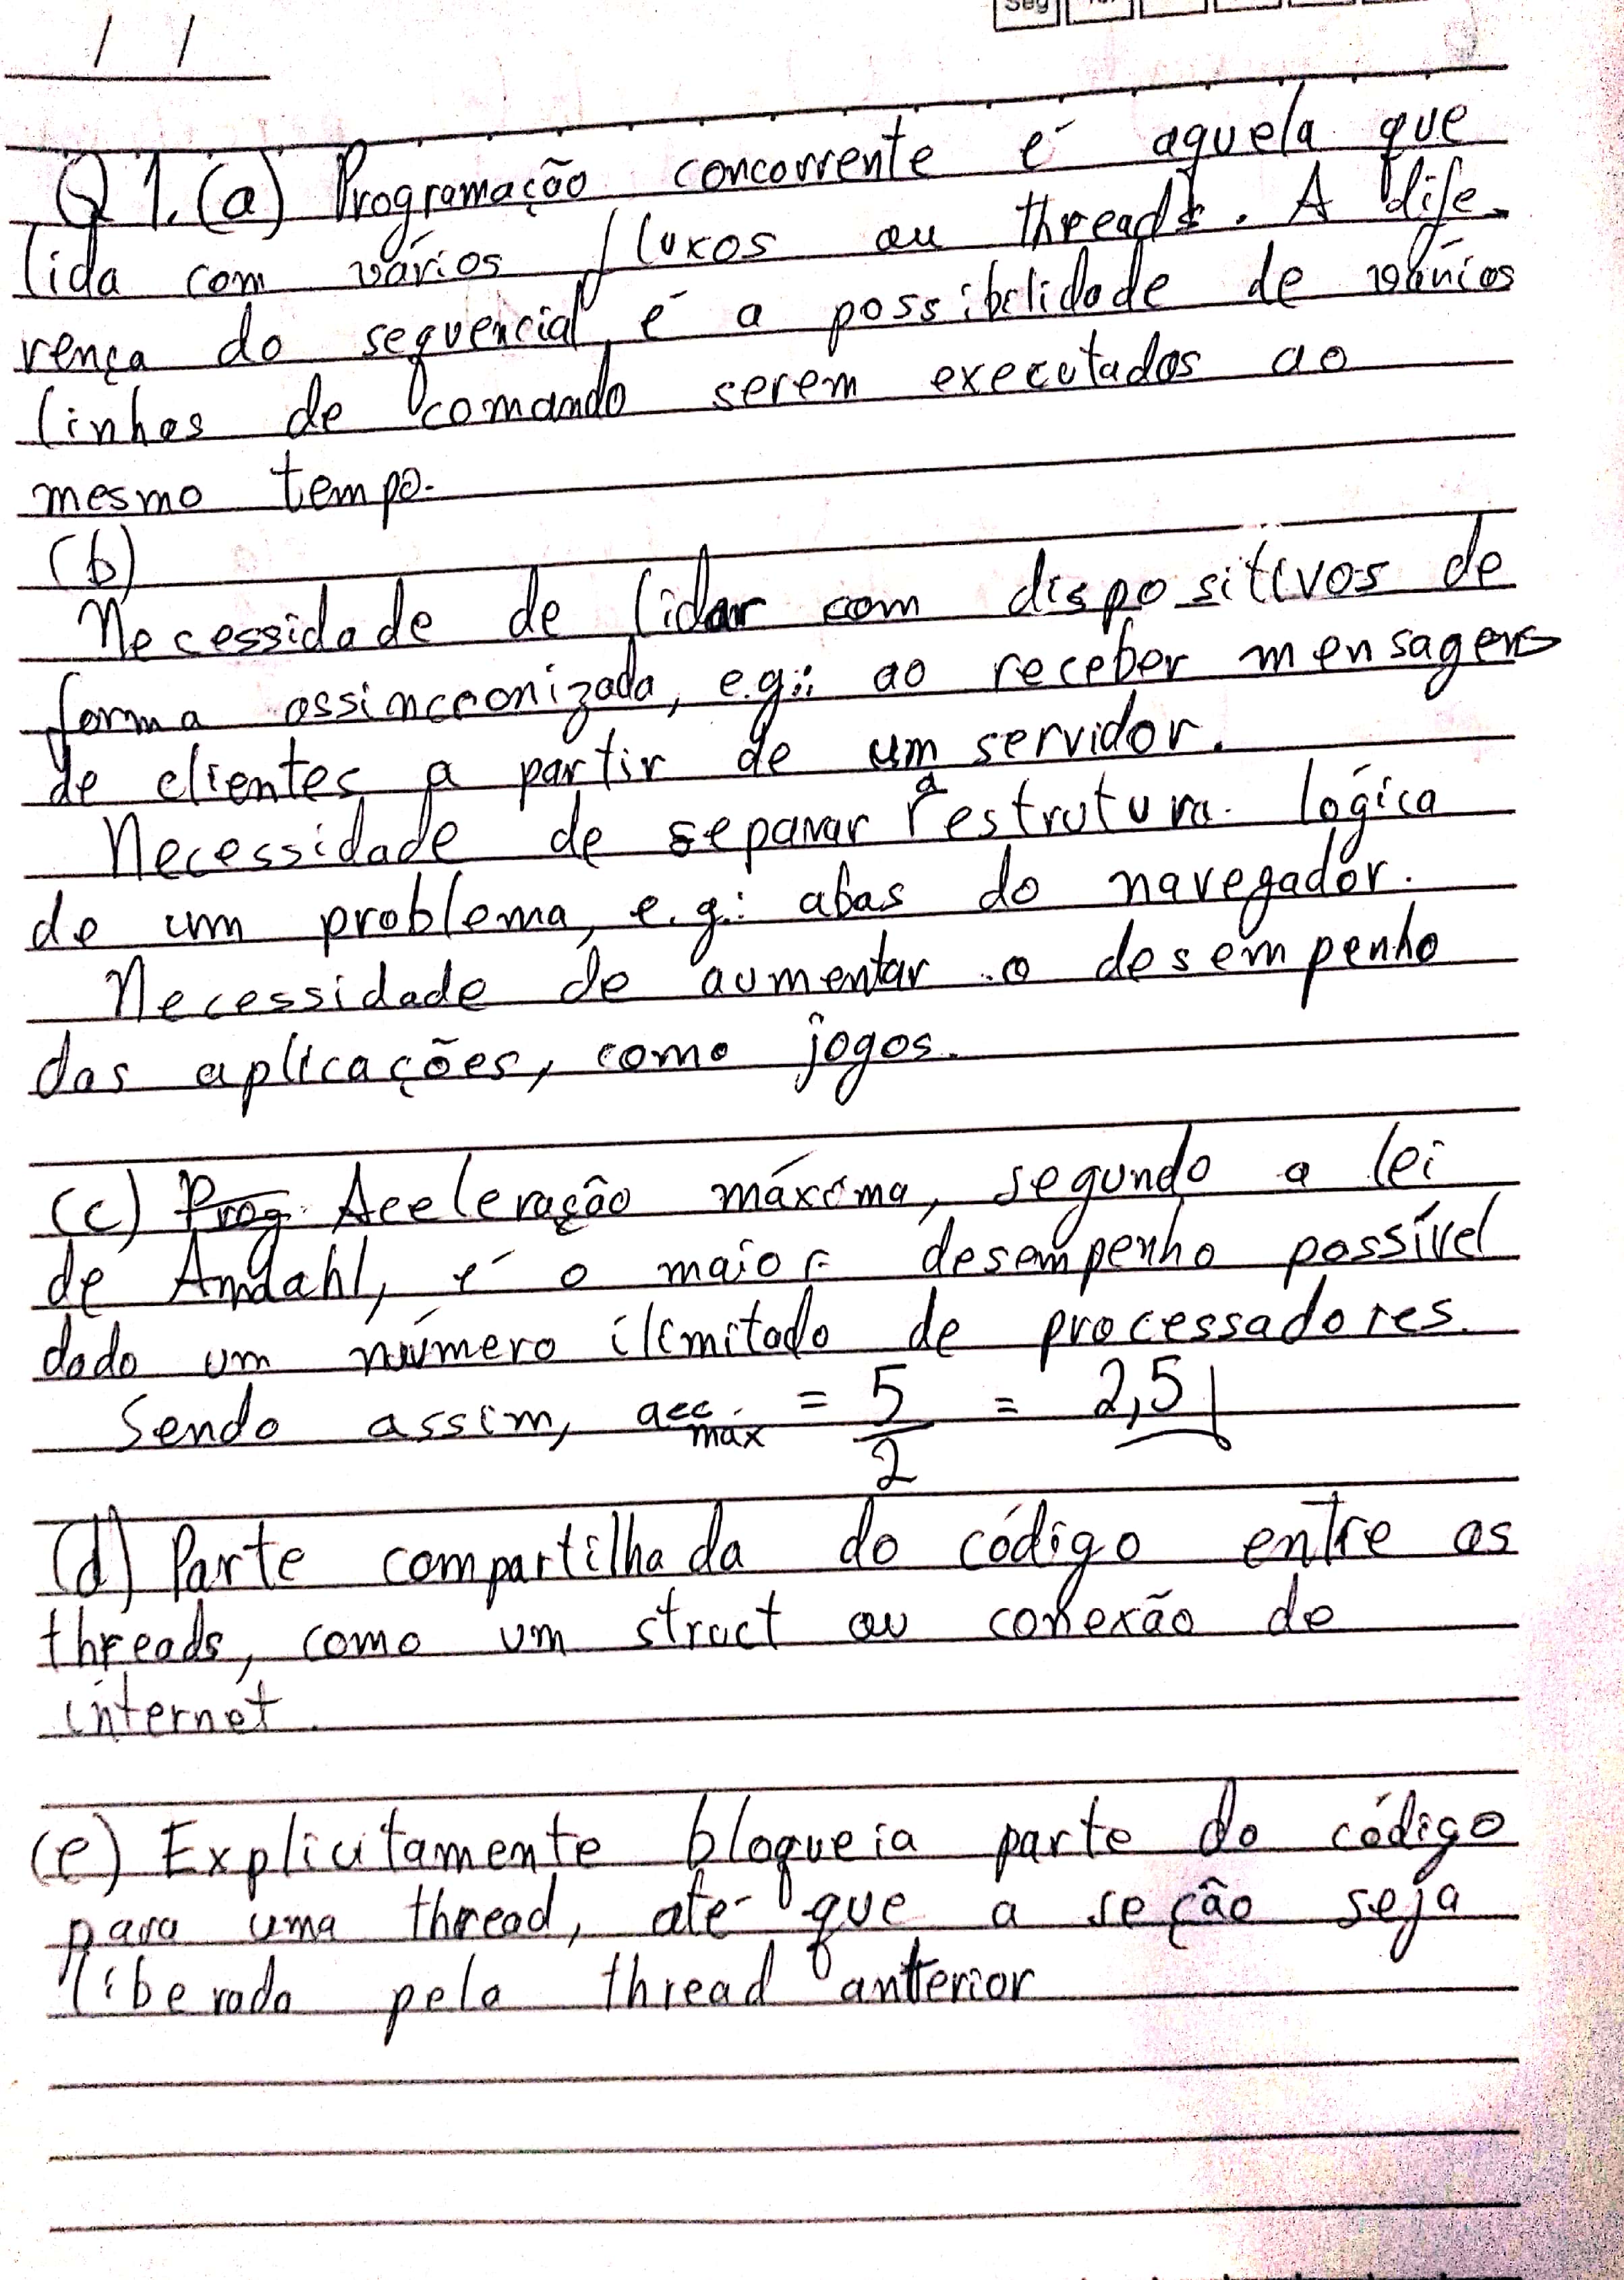 Seg
/ /
Q1. (a) Programação concorrente é aquela que
lida com vários fluxos ou threads. A dife-
rença do sequencial é a possibilidade de vários
linhas de comando serem executados ao
mesmo tempo.
(b)
Necessidade de lidar com dispositivos de
forma assincronizada, e.g.: ao receber mensagens
de clientes a partir de um servidor.
Necessidade de separar a estrutura lógica
de um problema, e.g.: abas do navegador.
Necessidade de aumentar o desempenho
das aplicações, como jogos.
(c) Prog Aceleração máxima, segundo a lei
de Amdahl, é o maior desempenho possível
dado um número ilimitado de processadores.
Sendo assim, acc máx = 5/2 = 2,5
(d) Parte compartilhada do código entre as
threads, como um struct ou conexão de
internet.
(e) Explicitamente bloqueia parte do código
para uma thread, até que a seção seja
liberada pela thread anterior